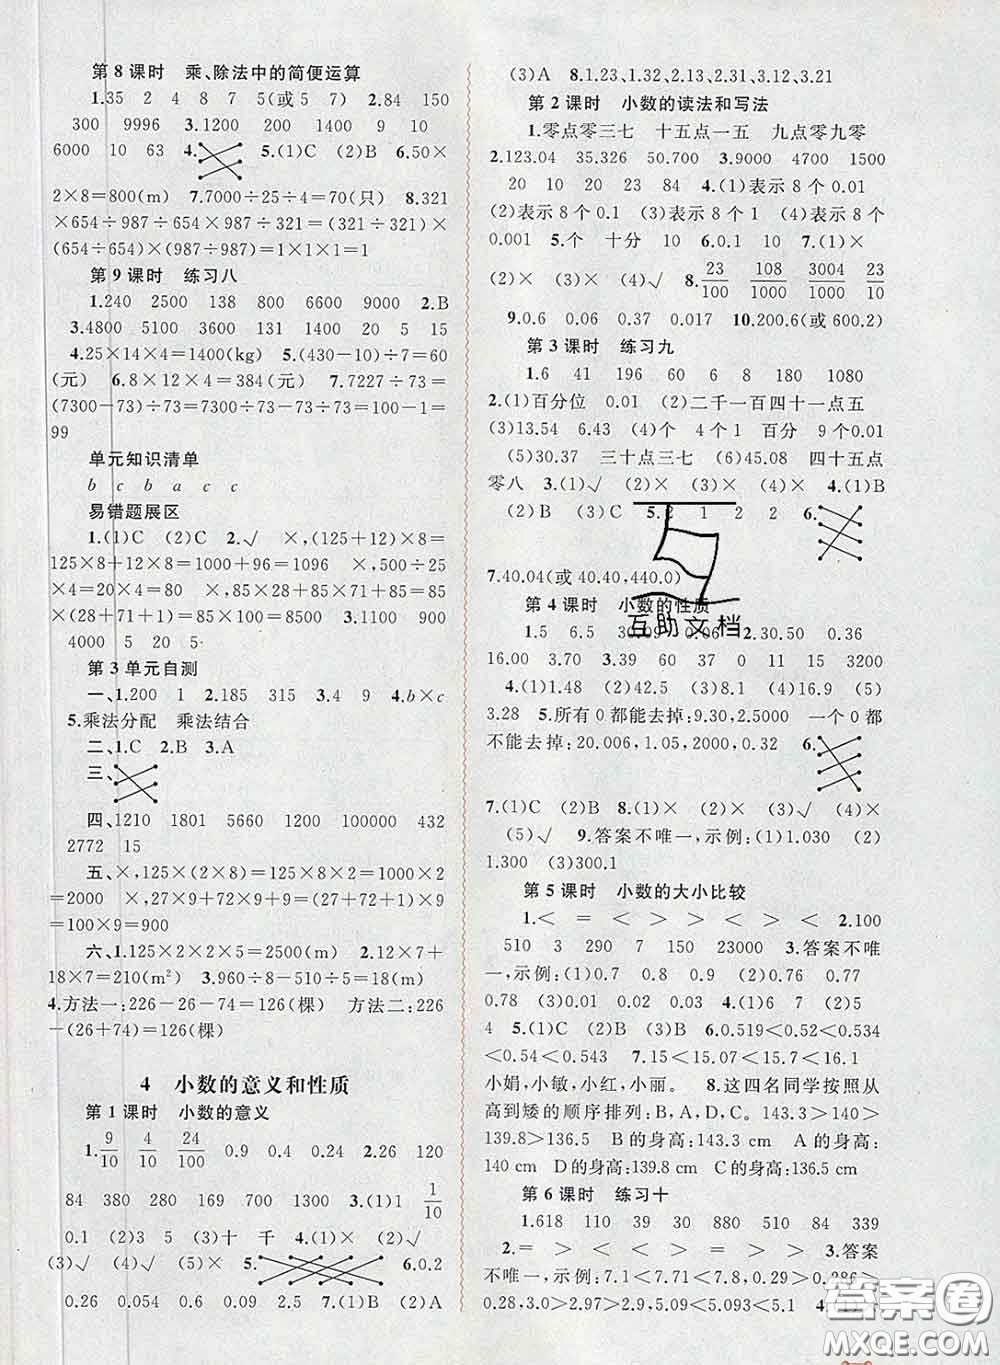 第8课时　乘、除法中的简便运算
1.35　2　4　8　7　5(或5　7)　2.84　150
300　9996　3.1200　200　1400　9　10
6000　10　63　4.　5.(1)C　(2)B　6.50×
2×8=800(m)　7.7000÷25÷4=70(只)　8.321
×654÷987÷654×987÷321=(321÷321)×
(654÷654)×(987÷987)=1×1×1=1
第9课时　练习八
1.240　2500　138　800　6600　9000　2.B
3.4800　5100　3600　131　1400　20　5　15
4.25×14×4=1400(kg)　5.(430-10)÷7=60
(元)　6.8×12×4=384(元)　7.7227÷73=
(7300-73)÷73=7300÷73-73÷73=100-1=
99
单元知识清单
b　c　b　a　c　c
易错题展区
1.(1)C　(2)C　2.√　×,(125+12)×8=
125×8+12×8=1000+96=1096　×,125×8=
1000　×,85×28+85×71+85=85×
(28+71+1)=85×100=8500　3.1100　900
4000　5　20　5
第3单元自测
一、1.200　1　2.185　315　3.4　9　4.b×c
5.乘法分配　乘法结合
二、1.C　2.B　3.A
三、
四、1210　1801　5660　1200　100000　432
2772　15
五、×,125×(2×8)=125×8×2=1000×2
=2000　×,27×9+72×9+9=(27+72+1)×
9=100×9=900
六、1.125×2×2×5=2500(m)　2.12×7+
18×7=210(m²)　3.960÷8-510÷5=18(m)
4.方法一:226-26-74=126(棵)　方法二:226
-(26+74)=126(棵)
4　小数的意义和性质
第1课时　小数的意义
1.9/10　4/10　24/100　0.9　0.4　0.24　2.26　120
84　380　280　169　700　1300　3.(1)1　1/10
0.1　(2)3　5　(3)十　千　4.(1)×　(2)√
(3)√　(4)√　(5)×　5.　6.0.2
0.26　0.054　0.6　0.09　2.5　7.(1)B　(2)A
(3)A　8.1.23,1.32,2.13,2.31,3.12,3.21
第2课时　小数的读法和写法
1.零点零三七　十五点一五　九点零九零
2.123.04　35.326　50.700　3.9000　4700　1500
20　10　20　23　84　4.(1)表示8个0.01
(2)表示8个0.1　(3)表示8个1　(4)表示8个
0.001　5.个　十分　10　6.0.1　10　7.(1)×
(2)×　(3)√　8.23/100　108/1000　3004/1000　23/10
9.0.6　0.06　0.37　0.017　10.200.6(或600.2)
第3课时　练习九
1.6　41　196　60　6　8　180　1080
2.(1)百分位　0.01　(2)二千一百四十一点五
(3)13.54　6.43　(4)个　4个1　百分　9个0.01
(5)30.37　三十点三七　(6)45.08　四十五点
零八　3.(1)√　(2)×　(3)×　4.(1)B
(2)B　(3)C　5.2　1　2　2　6.
7.40.04(或40.40,440.0)
第4课时　小数的性质
1.5　6.5　30.09　0.06　2.30.50　0.36
16.00　3.70　3.39　60　37　0　15　11　3200
4.(1)1.48　(2)42.5　(3)8.1　(4)16.9　(5)
3.28　5.所有0都能去掉:9.30,2.5000　一个0都
不能去掉:20.006,1.05,2000,0.32　6.
7.(1)C　(2)B　8.(1)×　(2)×　(3)√　(4)×
(5)√　9.答案不唯一,示例:(1)1.030　(2)
1.300　(3)300.1
第5课时　小数的大小比较
1.<　=　<　>　>　<　>　<　2.100
510　3　290　7　150　23000　3.答案不唯
一,示例:(1)0.7　0.8　0.9　(2)0.76　0.77
0.78　(3)0.01　0.02　0.03　4.(1)6　7　(2)5
4　5.(1)C　(2)B　(3)C　6.0.519<0.52<0.534
<0.54<0.542　7.15<15.7<15.9<16.1
小娟,小敏,小红,小丽。　8.这四名同学按照从
高到矮的顺序排列:B,A,D,C。143.3>140>
139.8>136.5　B的身高:143.3 cm　A的身高:
140 cm　D的身高:139.8 cm　C的身高:136.5 cm
第6课时　练习十
1.618　110　39　30　880　510　84　339
2.=　>　<　>　<　>　<　3.答案
不唯一,示例:7.1<7.71<7.8,0.29>0.286>
0.28,3.0>2.97>2.9,5.09<5.093<5.1　4.
互助文档
答案圈
MXQE.COM